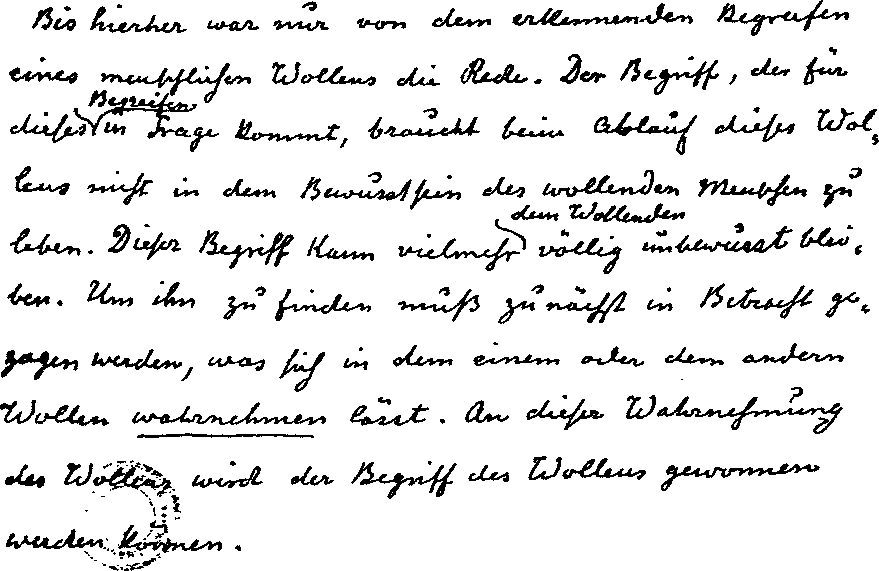 Bis hierher war nur von dem erkennenden Begreifen
eines menschlichen Wollens die Rede. Der Begriff, der für
Begreifen
dieses in Frage kommt, braucht beim Ablauf dieses Wol-
lens nicht in dem Bewusstsein des wollenden Menschen zu
dem Wollenden
leben. Dieser Begriff kann vielmehr völlig unbewusst blei-
ben. Um ihn zu finden muß zunächst in Betracht ge-
zogen werden, was sich in dem einem oder dem andern
Wollen wahrnehmen lässt. An dieser Wahrnehmung
des Wollens wird der Begriff des Wollens gewonnen
werden können.